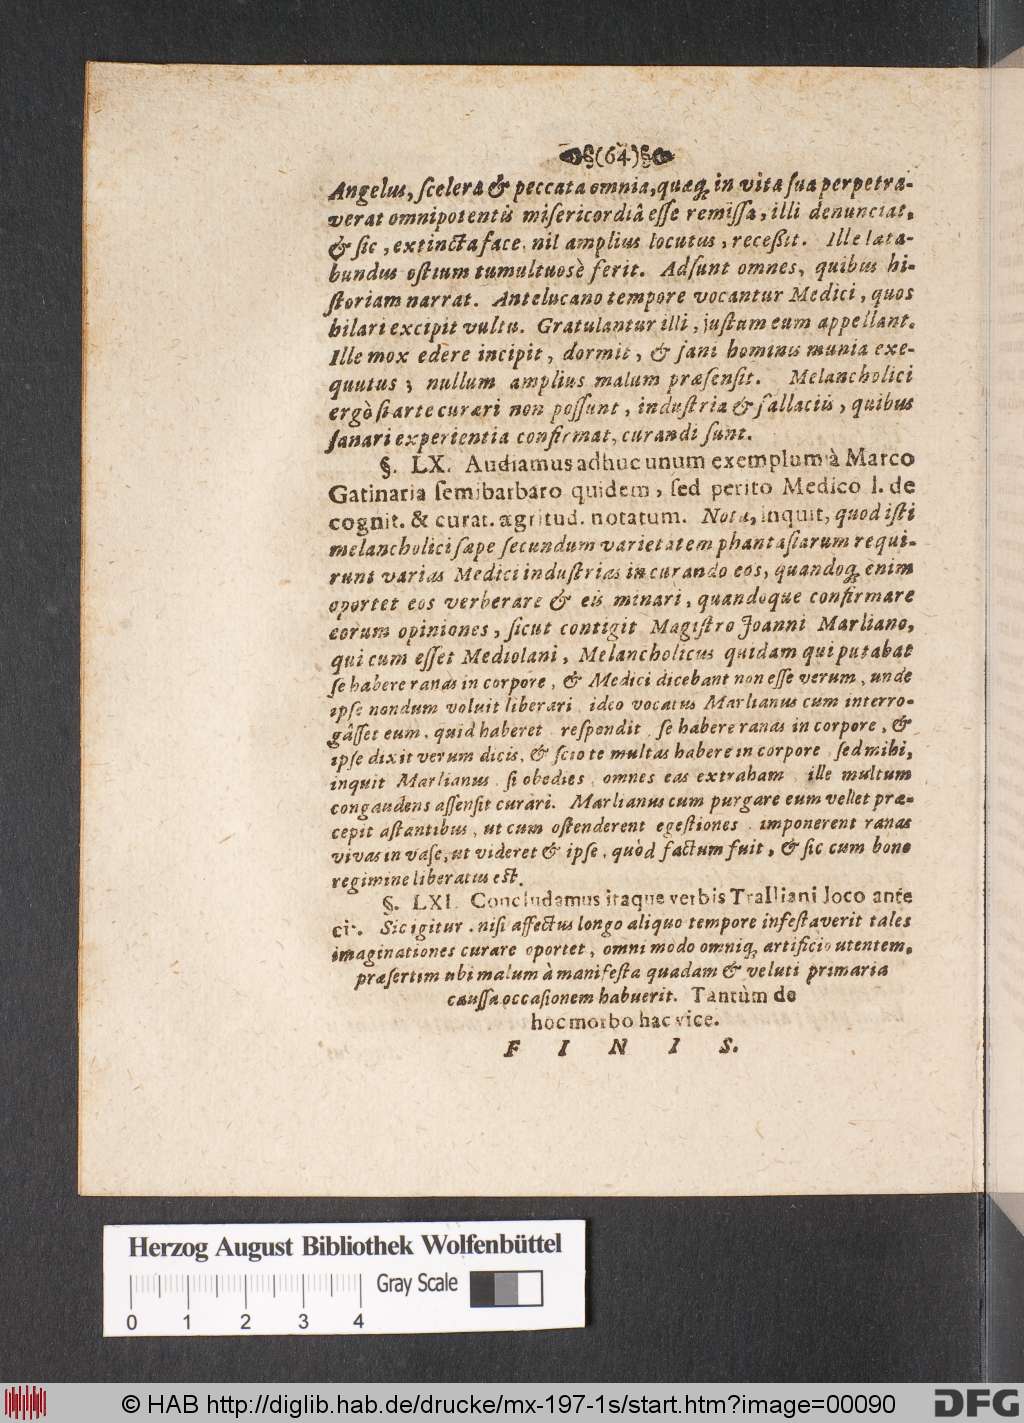 (64)
Angelus, scelera & peccata omnia, quæq; in vita sua perpetra-
verat omnipotentis misericordiâ esse remissa, illi denunciat,
& sic, extincta face, nil amplius locutus, recessit. Ille læta-
bundus ostium tumultuosè ferit. Adsunt omnes, quibus hi-
storiam narrat. Antelucano tempore vocantur Medici, quos
hilari excipit vultu. Gratulantur illi, justum eum appellant.
Ille mox edere incipit, dormit, & sani hominis munia exe-
quutus; nullum amplius malum præsensit. Melancholici
ergò si arte curari non possunt, industria & fallaciis, quibus
sanari experientia confirmat, curandi sunt.
§. LX. Audiamus adhuc unum exemplum à Marco
Gatinaria semibarbaro quidem, sed perito Medico l. de
cognit. & curat. ægritud. notatum. Nota, inquit, quod isti
melancholici sæpe secundum varietatem phantasiarum requi-
runt varias Medici industrias in curando eos, quandoq; enim
oportet eos verberare & eis minari, quandoque confirmare
eorum opiniones, sicut contigit Magistro Joanni Marliano,
qui cum esset Mediolani, Melancholicus quidam qui putabat
se habere ranas in corpore, & Medici dicebant non esse verum, unde
ipse nondum voluit liberari, ideo vocatus Marlianus cum interro-
gâsset eum, quid haberet, respondit, se habere ranas in corpore, &
ipse dixit verum dicis, & scio te multas habere in corpore, sed mihi,
inquit Marlianus, si obedies, omnes eas extraham, ille multum
congaudens assensit curari. Marlianus cum purgare eum vellet præ-
cepit astantibus, ut cum ostenderent egestiones, imponerent ranas
vivas in vase, ut videret & ipse, quòd factum fuit, & sic cum bono
regimine liberatus est.
§. LXI. Concludamus itaque verbis Tralliani loco ante
cit. Sic igitur, nisi affectus longo aliquo tempore infestaverit tales
imaginationes curare oportet, omni modo omniq; artificio utentem,
præsertim ubi malum à manifesta quadam & veluti primaria
caussa occasionem habuerit. Tantùm de
hoc morbo hac vice.
F I N I S.
Herzog August Bibliothek Wolfenbüttel
Gray Scale
0 1 2 3 4
© HAB http://diglib.hab.de/drucke/mx-197-1s/start.htm?image=00090
DFG